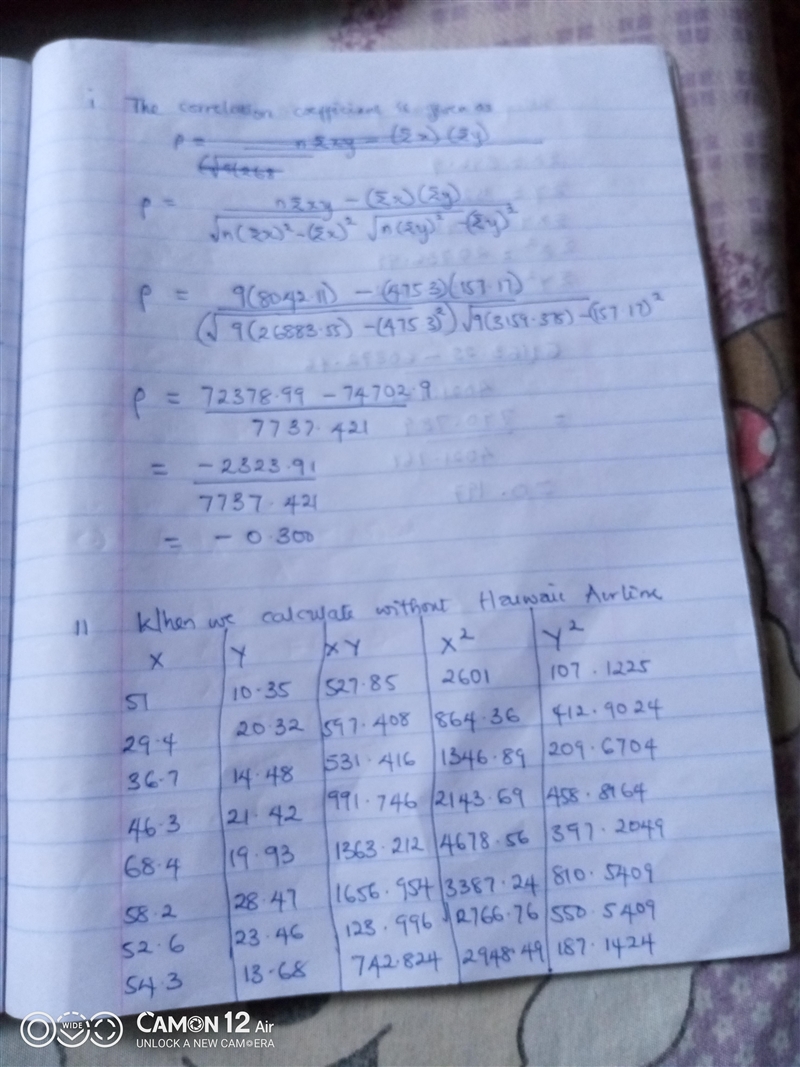 i The correlation coefficient is given as
ρ = nΣxy - (Σx)(Σy)
ρ = nΣxy - (Σx)(Σy)
√n(Σx)² - (Σx)² √n(Σy)² - (Σy)²
ρ = 9(8042.11) - (475.3)(157.17)
(√9(26883.55) - (475.3)²) √9(3159.578) - (157.17)²
ρ = 72378.99 - 74702.9
7737.421
= -2323.91
7737.421
= -0.300
11 When we calculate without Hauwaii Airline
X Y XY X² Y²
51 10.35 527.85 2601 107.1225
29.4 20.32 597.408 864.36 412.9024
36.7 14.48 531.416 1346.89 209.6704
46.3 21.42 991.746 2143.69 458.8164
68.4 19.93 1363.212 4678.56 397.2049
58.2 28.47 1656.954 3387.24 810.5409
52.6 23.46 123.996 2766.76 550.5409
54.3 13.68 742.824 2948.49 187.1424
WIDE
CAMON 12 Air
UNLOCK A NEW CAMERA